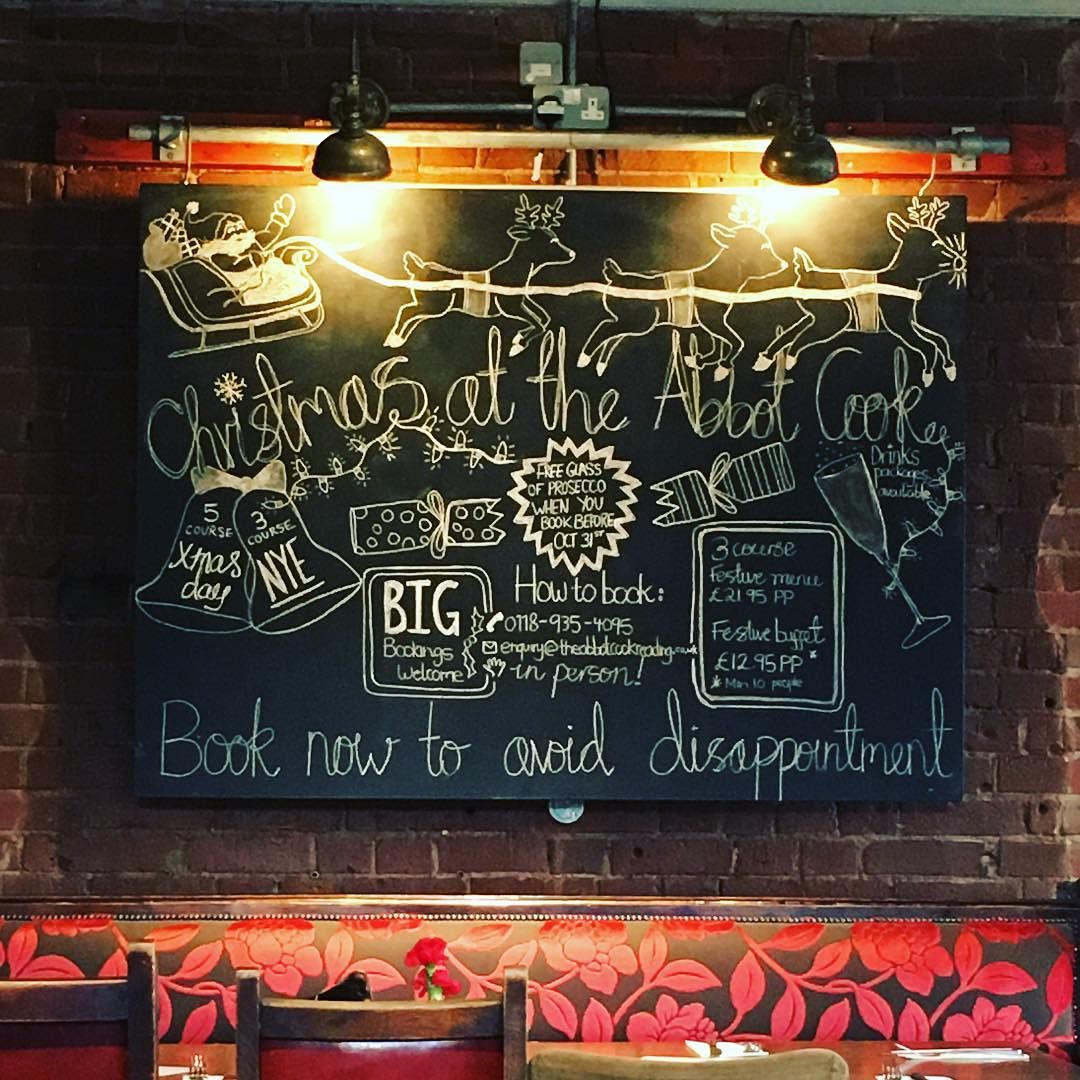 Christmas at the Abbot Cook
5
COURSE
Xmas
day
3
COURSE
NYE
FREE GLASS
OF PROSECCO
WHEN YOU
BOOK BEFORE
OCT 31ST
Drinks
packages
available
BIG
Bookings
Welcome
How to book:
0118-935-4095
enquiry@theabbotcookreading.co.uk
in person!
3 course
Festive menu
£21.95 PP
Festive buffet
£12.95 PP *
* Min 10 people
Book now to avoid disappointment